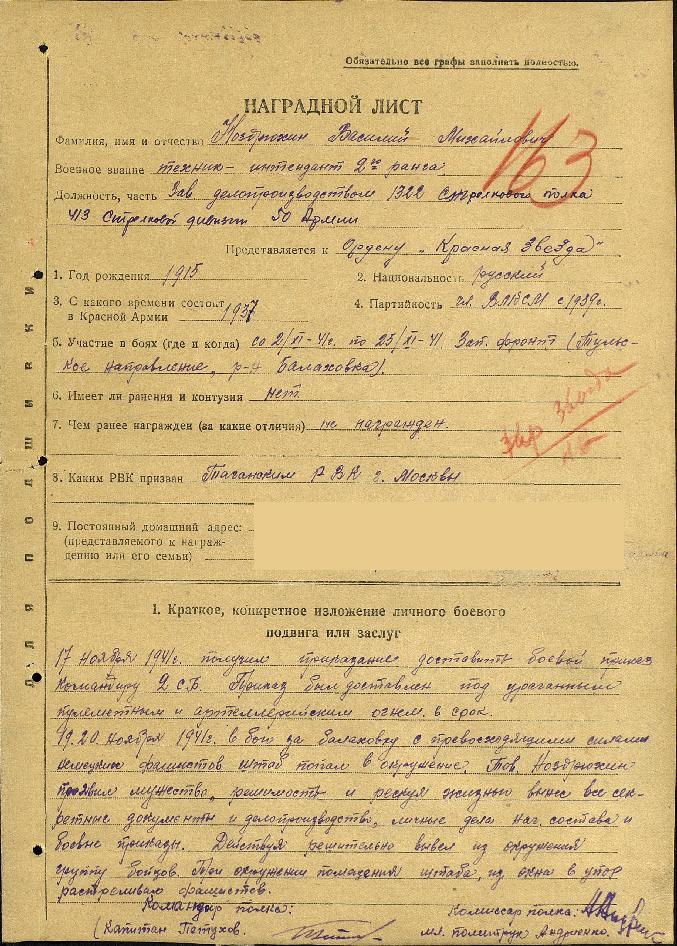 Обязательно все графы заполнять полностью.
НАГРАДНОЙ ЛИСТ
Фамилия, имя и отчество Ноздрюхин Василий Михайлович
163
Военное звание техник-интендант 2го ранга
Должность, часть Зав делопроизводством 1322 стрелкового полка
413 Стрелковой дивизии 50 Армии
Представляется к Ордену „Красная Звезда"
1. Год рождения 1915 2. Национальность русский
3. С какого времени состоит в Красной Армии 1937 4. Партийность чл. ВЛКСМ с 1939г.
5. Участие в боях (где и когда) со 2/XI-41г. по 25/XI-41 Зап. фронт (Туль-
ское направление, р-н Балаховка).
6. Имеет ли ранения и контузии нет
7. Чем ранее награжден (за какие отличия) не награжден.
8. Каким РВК призван Таганским РВК г. Москвы
9. Постоянный домашний адрес:
(представляемого к награж-
дению или его семьи)
I. Краткое, конкретное изложение личного боевого
подвига или заслуг
17 ноября 1941г. получил приказание доставить боевой приказ
командиру 2 с.б. Приказ был доставлен под ураганным
пулеметным и артеллерийским огнем в срок.
19.20 ноября 1941г. в бою за Балаховку с превосходящими силами
немецких фашистов штаб попал в окружение. Тов. Ноздрюхин
проявил мужество, решимость и рискуя жизнью вынес все сек-
ретные документы и делопроизводство, личные дела нач. состава и
боевые приказы. Действуя решительно вывел из окружения
группу бойцов. При окружении помещения штаба, из окна в упор
расстреливал фашистов.
Командир полка: Комиссар полка:
(Капитан Петухов. мл. политрук Андриенко.
ДЛЯ ПОДШИВКИ